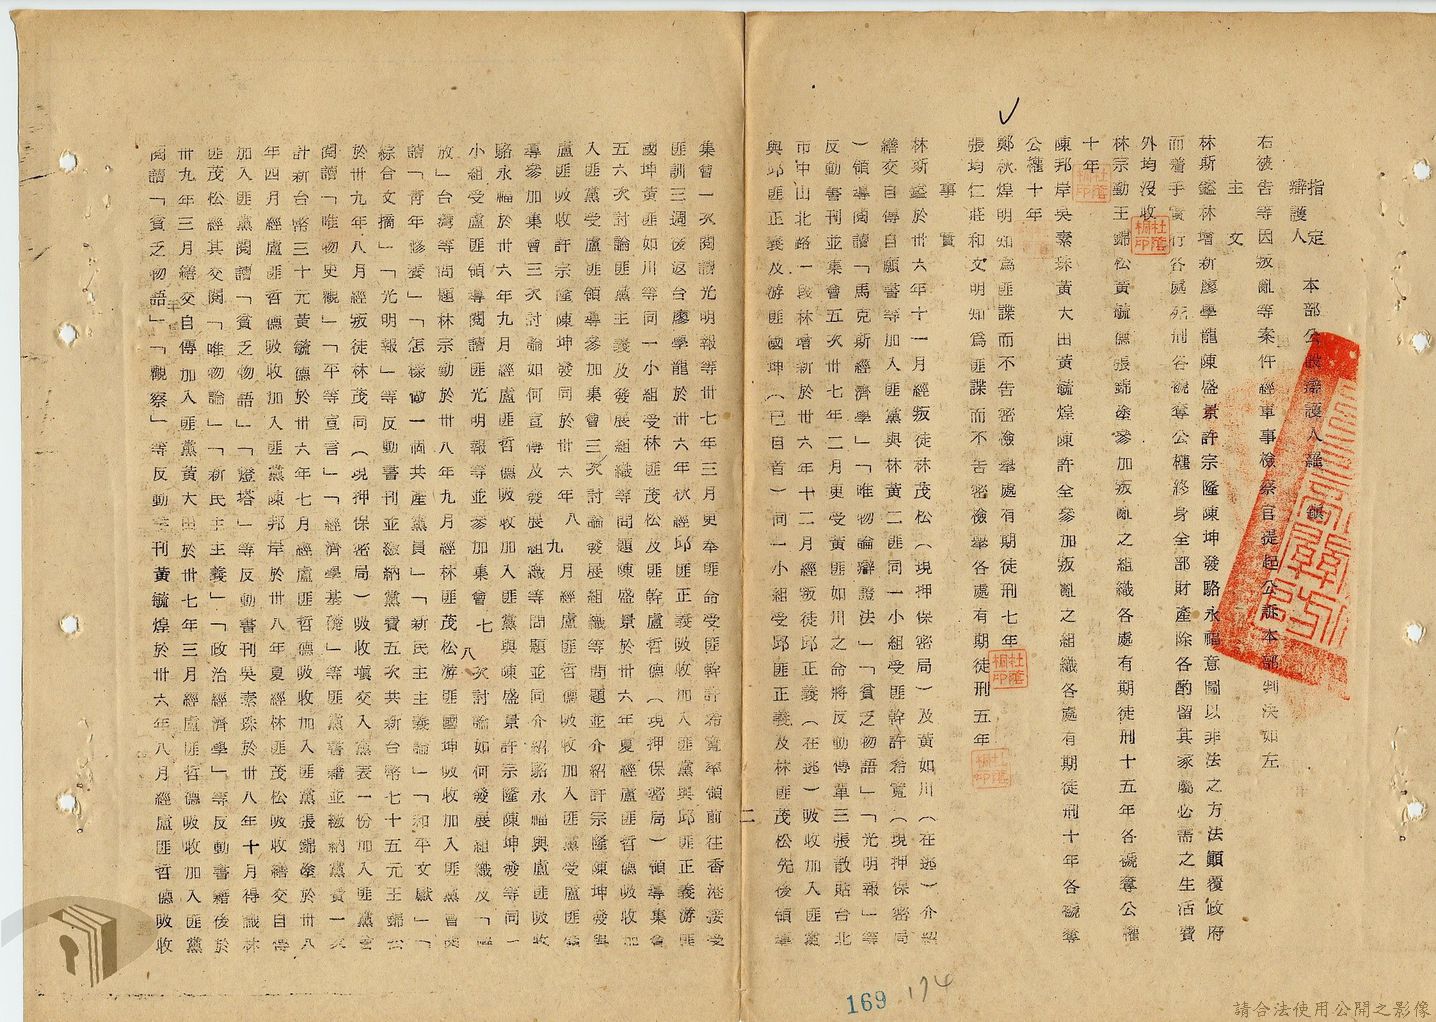 指定
辯護人　本部公設辯護人羅　鎮
右被告等因叛亂等案件經軍事檢察官提起公訴本部判決如左
主　文
林斯鑑林增新廖學龍陳盛景許宗隆陳坤發駱永福意圖以非法之方法顛覆政府
而着手實行各處死刑各褫奪公權終身全部財產除各酌留其家屬必需之生活費
外均沒收
林宗勳王錦松黃毓德張錦塗參加叛亂之組織各處有期徒刑十五年各褫奪公權
十年
陳邦岸吳素珠黃大田黃毓煌陳許全參加叛亂之組織各處有期徒刑十年各褫奪
公權十年
鄭秋煌明知為匪諜而不告密檢舉處有期徒刑七年
張均仁莊和文明知為匪諜而不告密檢舉各處有期徒刑五年
事　實
林斯鑑於卅六年十一月經叛徒林茂松（現押保密局）及黃如川（在逃）介紹
繕交自傳自願書等加入匪黨與林黃二匪同一小組受匪幹許希寬（現押保密局
）領導閱讀「馬克斯經濟學」「唯物論辯證法」「貧乏物語」「光明報」等
反動書刊並集會五次卅七年二月更受黃匪如川之命將反動傳單三張散貼台北
市中山北路一段林增新於卅六年十二月經叛徒邱正義（在逃）吸收加入匪黨
與邱匪正義及游匪國坤（已自首）同一小組受邱匪正義及林匪茂松先後領導
二
集會一次閱讀光明報等卅七年三月更奉匪命受匪幹許希寬率領前往香港接受
匪訓三週後返台廖學龍於卅六年秋經邱匪正義吸收加入匪黨與邱匪正義游匪
國坤黃匪如川等同一小組受林匪茂松及匪幹盧哲德（現押保密局）領導集會
五六次討論匪黨主義及發展組織等問題陳盛景於卅六年夏經盧匪哲德吸收加
入匪黨受盧匪領導參加集會三次討論發展組織等問題並介紹許宗隆陳坤發與
盧匪吸收許宗隆陳坤發同於卅六年八九月經盧匪哲德吸收加入匪黨受盧匪領
導參加集會三次討論如何宣傳及發展組織等問題並同介紹駱永福與盧匪吸收
駱永福於卅六年九月經盧匪哲德吸收加入匪黨與陳盛景許宗隆陳坤發等同一
小組受盧匪領導閱讀匪光明報等並參加集會七八次討論如何發展組織及「解
放」台灣等問題林宗勳於卅八年九月經林匪茂松游匪國坤吸收加入匪黨曾閱
讀「青年修養」「怎樣做一個共產黨員」「新民主主義論」「和平文獻」「
綜合文摘」「光明報」等反動書刊並繳納黨費五次共新台幣七十五元王錦松
於卅九年八月經叛徒林茂同（現押保密局）吸收填交入黨表一份加入匪黨曾
閱讀「唯物史觀」「平等宣言」「經濟學基礎」等匪黨書籍並繳納黨費一次
計新台幣三十元黃毓德於卅六年七月經盧匪哲德吸收加入匪黨張錦塗於卅八
年四月經盧匪哲德吸收加入匪黨陳邦岸於卅八年夏經林匪茂松吸收繕交自傳
加入匪黨閱讀「貧乏物語」「燈塔」等反動書刊吳素珠於卅八年十月得識林
匪茂松經其交閱「唯物論」「新民主主義」「政治經濟學」等反動書籍後於
卅九年三月繕交自傳加入匪黨黃大田於卅七年三月經盧匪哲德吸收加入匪黨
閱讀「貧乏物語」「觀察」等反動書刊黃毓煌於卅六年八月經盧匪哲德吸收
169
174
請合法使用公開之影像